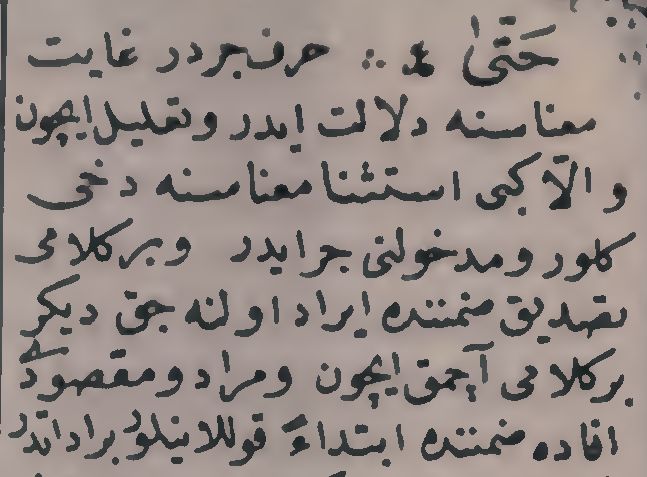 حَتّٰى ع :: حرف جردر غايت
معناسنه دلالت ايدر وتعليل ايچون
والّا كبى استثنا معناسنه دخى
كلور ومدخولنى جر ايدر وبر كلامى
تصديق ضمننده ايراد اولنه جق ديكر
بر كلامى آچمق ايچون ومراد ومقصودى
افاده ضمننده ابتداءً قوللانيلور بر اداتدر